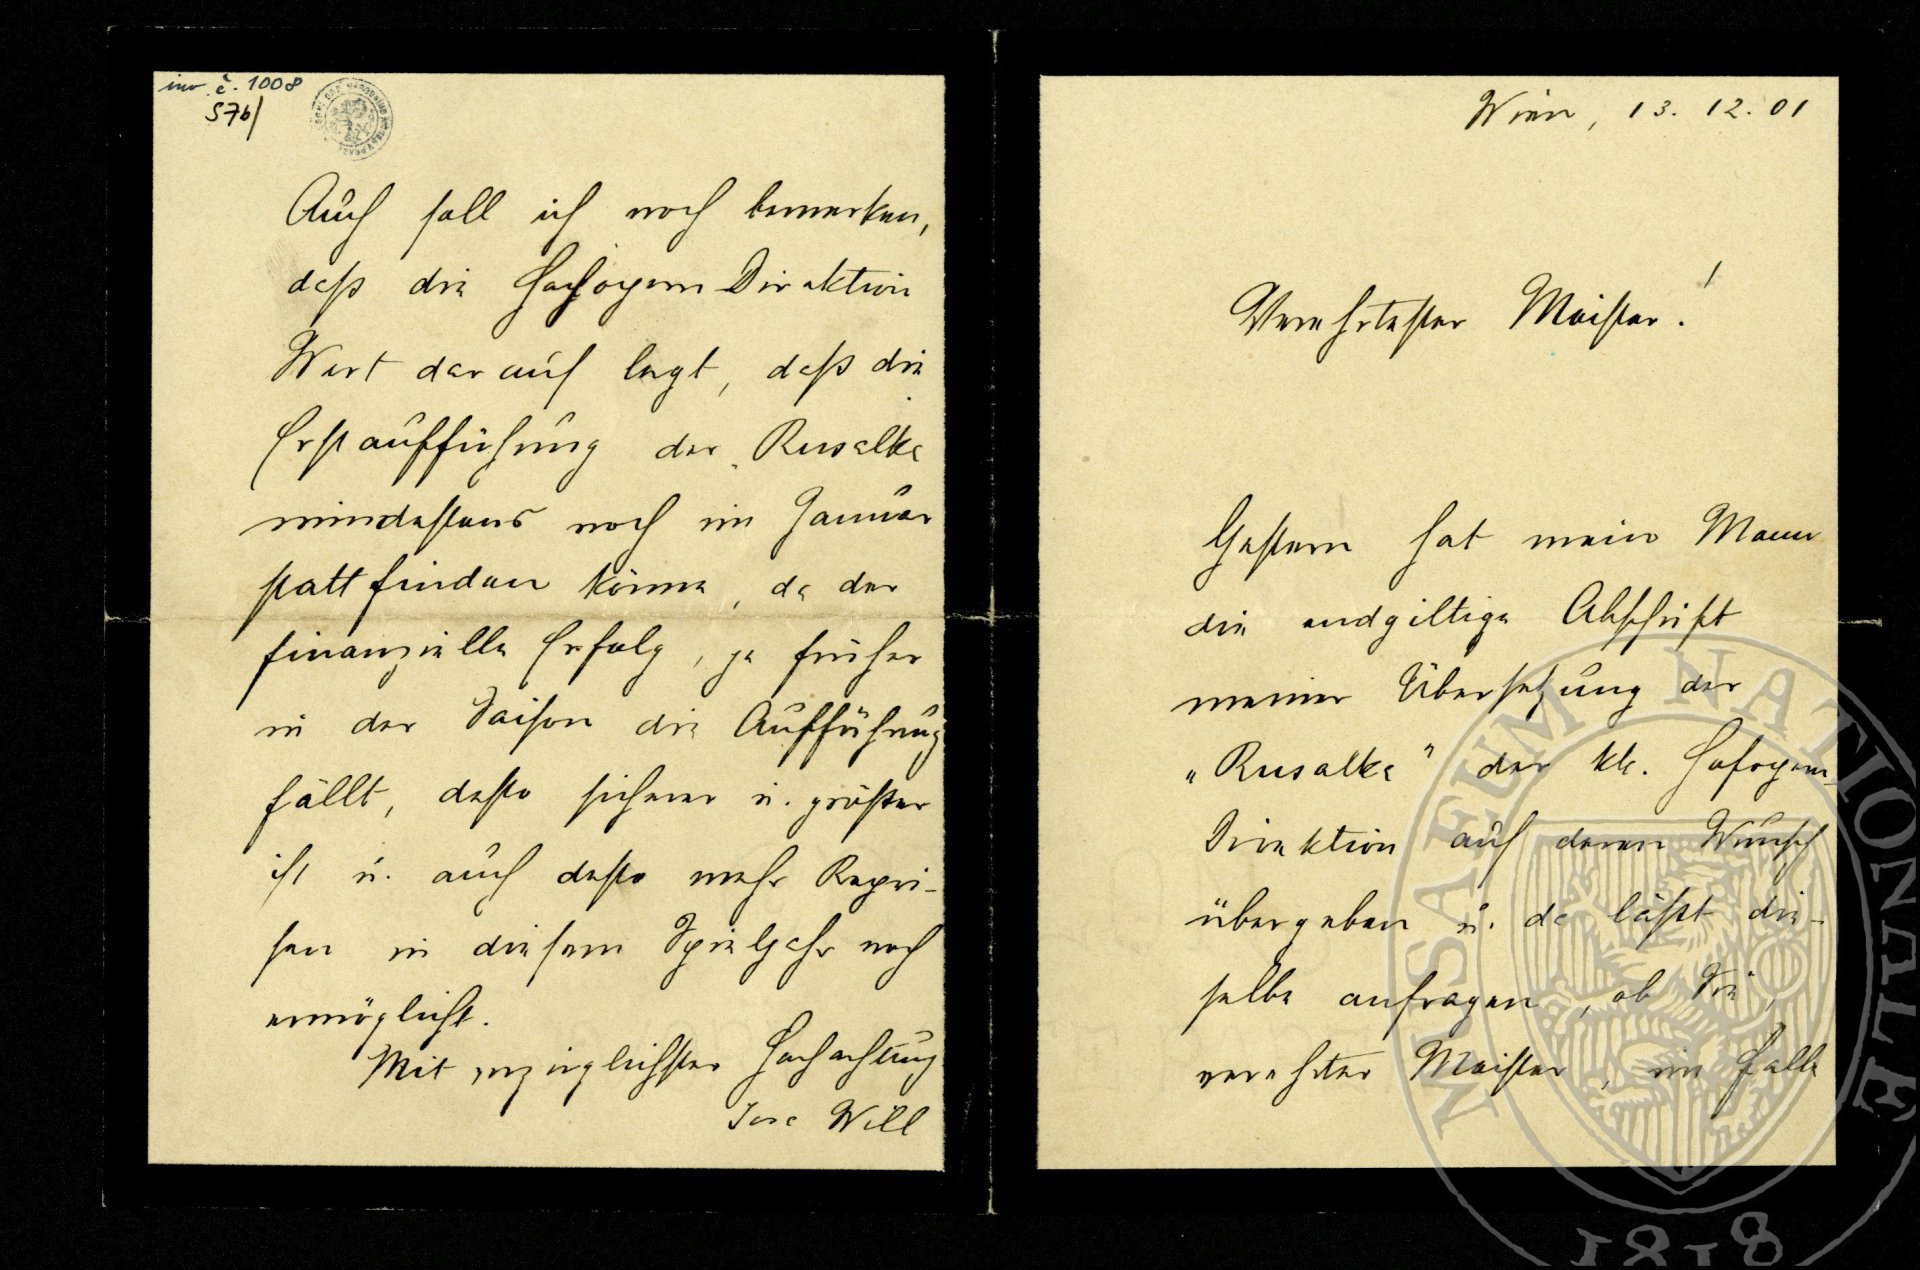 inv. č. 1008
S76/
Auch soll ich noch bemerken,
daß die Hofopern Direktion
Wert darauf legt, daß die
Erstaufführung der Rusalka
mindestens noch im Januar
stattfinden könne, da der
finanzielle Erfolg, je früher
in der Saison die Aufführung
fällt, desto sicherer u. größer
ist u. auch desto mehr Repri-
sen in diesem Spieljahr noch
ermöglicht.
Mit vorzüglichster Hochachtung
Will
Wien, 13. 12. 01
Verehrtester Meister!
Gestern hat mein Mann
die endgiltige Abschrift
meiner Übersetzung der
„Rusalka" der kk. Hofopern-
Direktion auf deren Wunsch
übergeben u. da läßt die-
selbe anfragen, ob Sie,
verehrter Meister, im Falle
MUSAEUM NATIONALE
1818